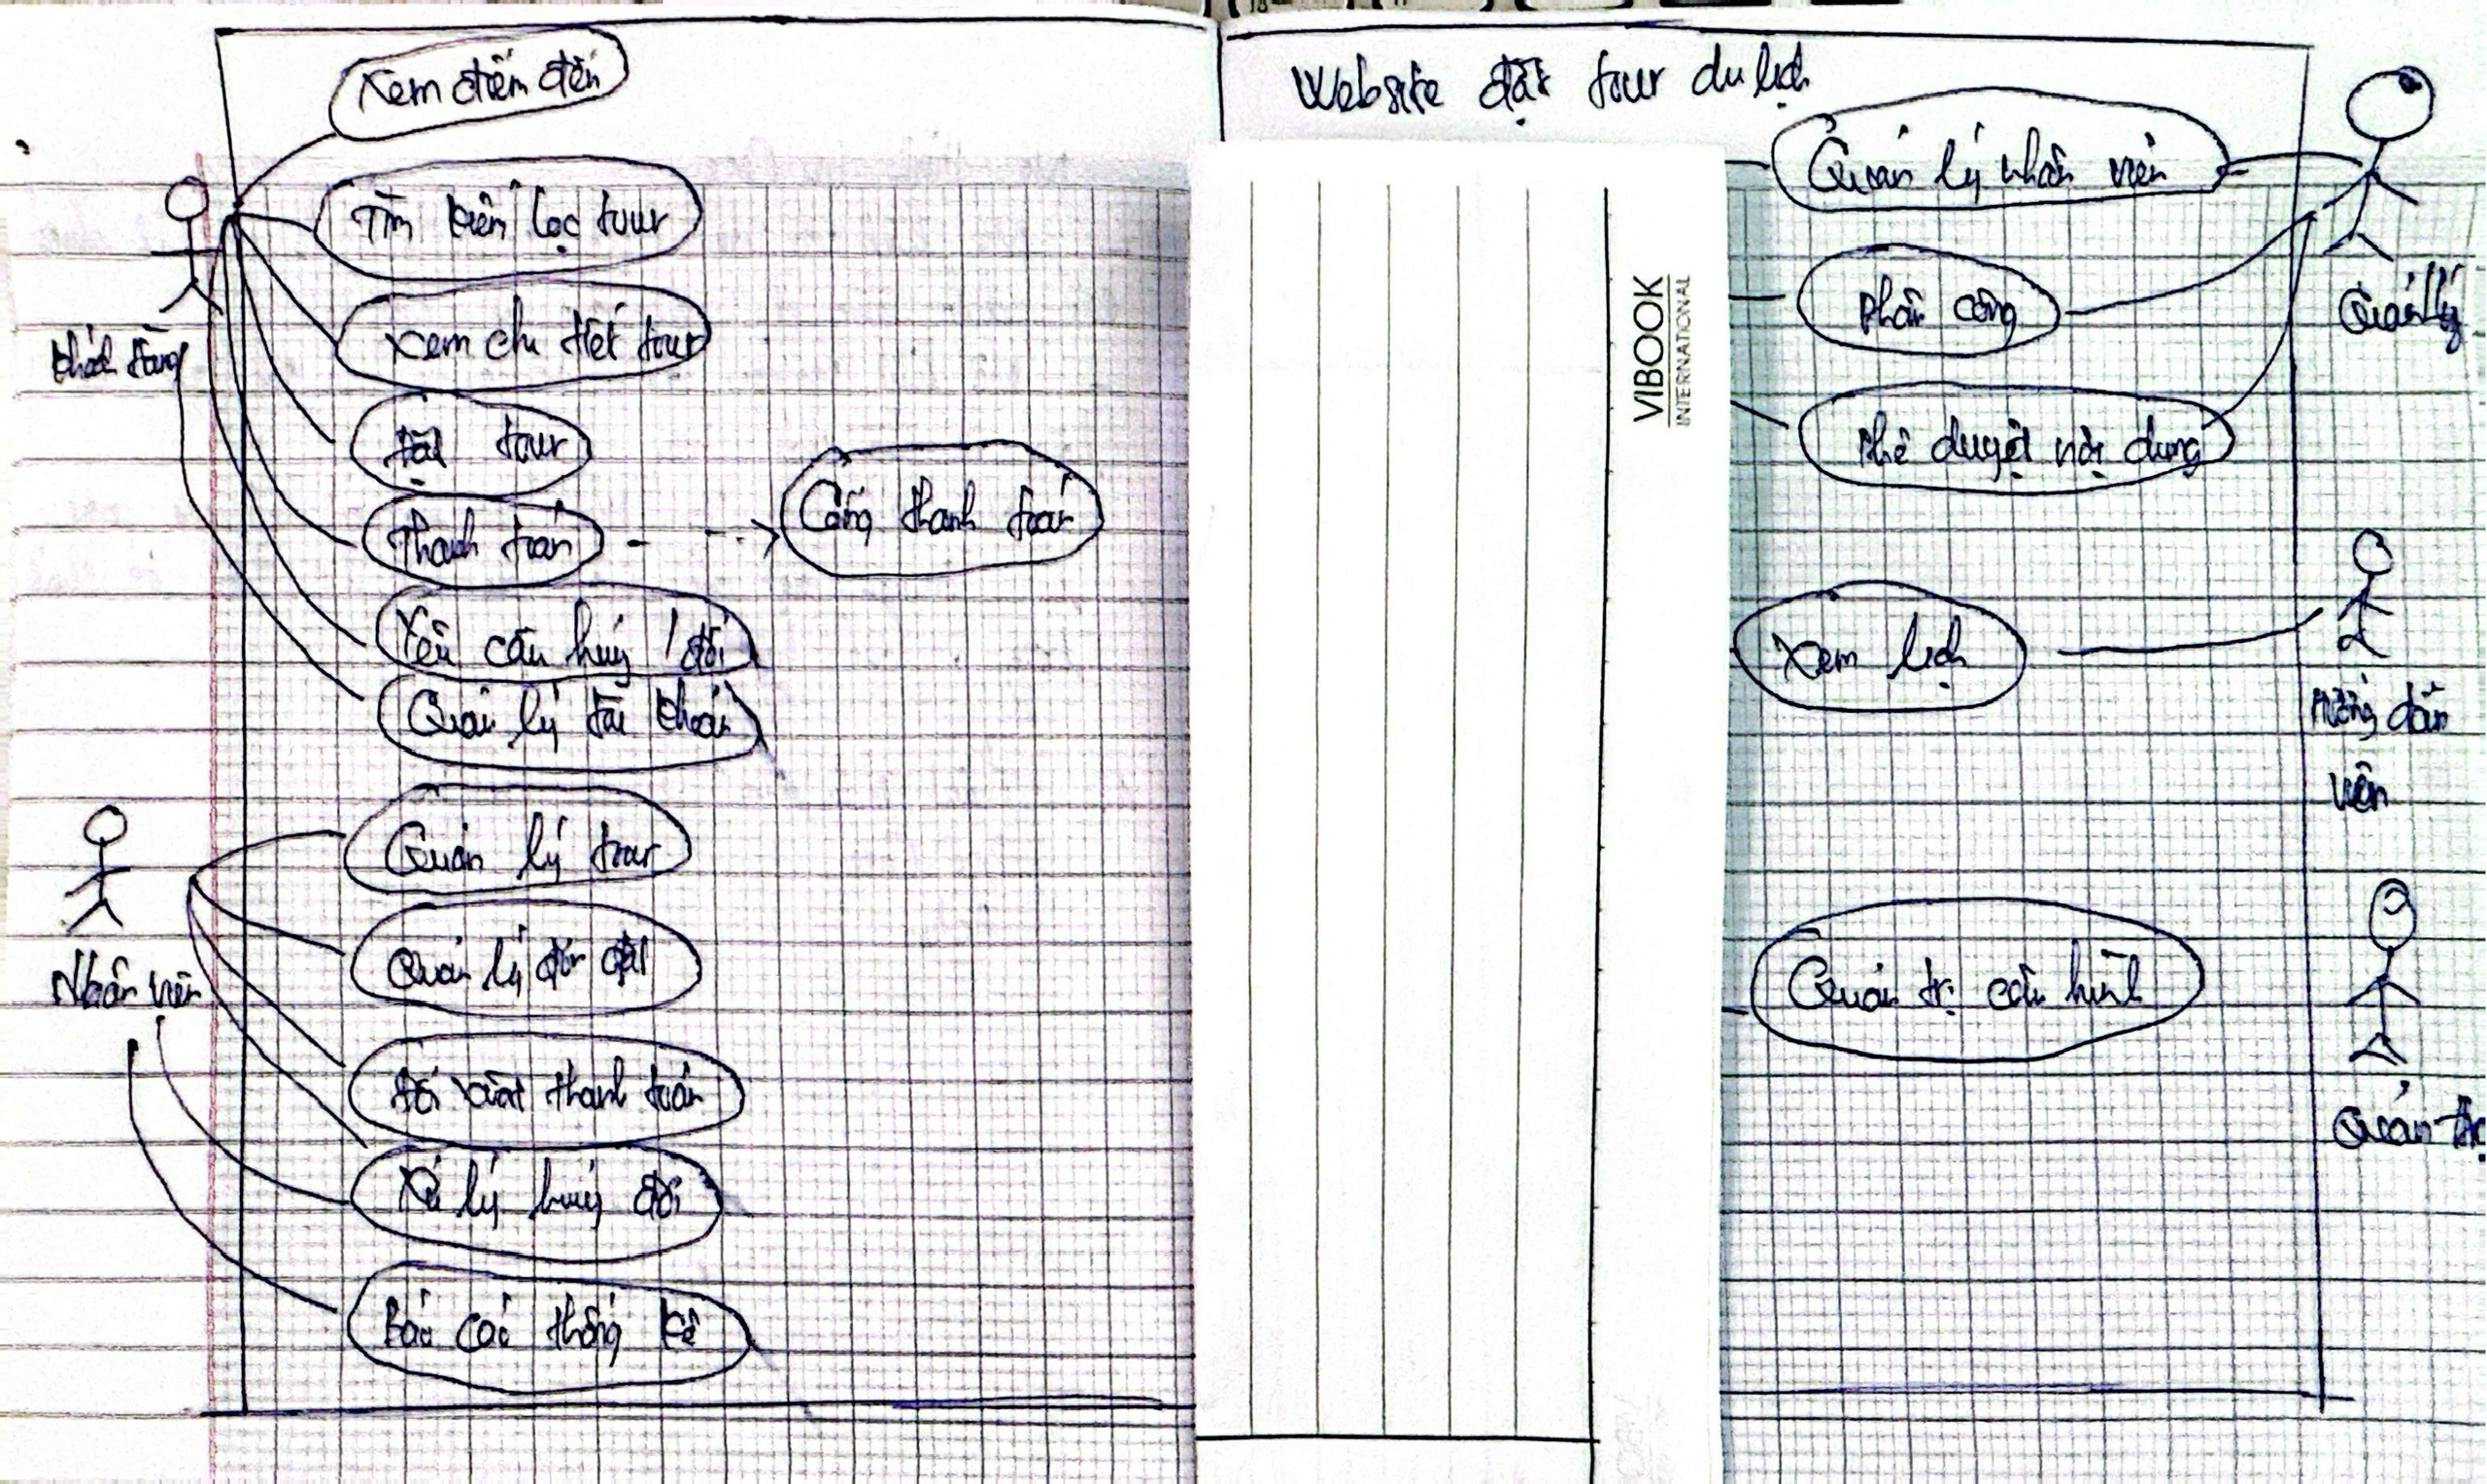 Website đặt tour du lịch
Xem điểm đến
Tìm kiếm lọc tour
Xem chi tiết tour
Đặt tour
Thanh toán
Cổng thanh toán
Yêu cầu huỷ / đổi
Quản lý tài khoản
Khách hàng
Quản lý tour
Quản lý đơn đặt
Đối soát thanh toán
Xử lý huỷ đổi
Báo cáo thống kê
Nhân viên
VIBOOK
INTERNATIONAL
Quản lý nhân viên
Phân công
Phê duyệt nội dung
Quản lý
Xem lịch
Hướng dẫn
viên
Quản trị cấu hình
Quản trị